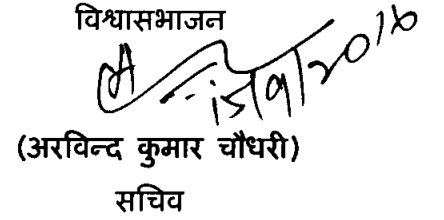 विश्वासभाजन
15/9/2016
(अरविन्द कुमार चौधरी)
सचिव